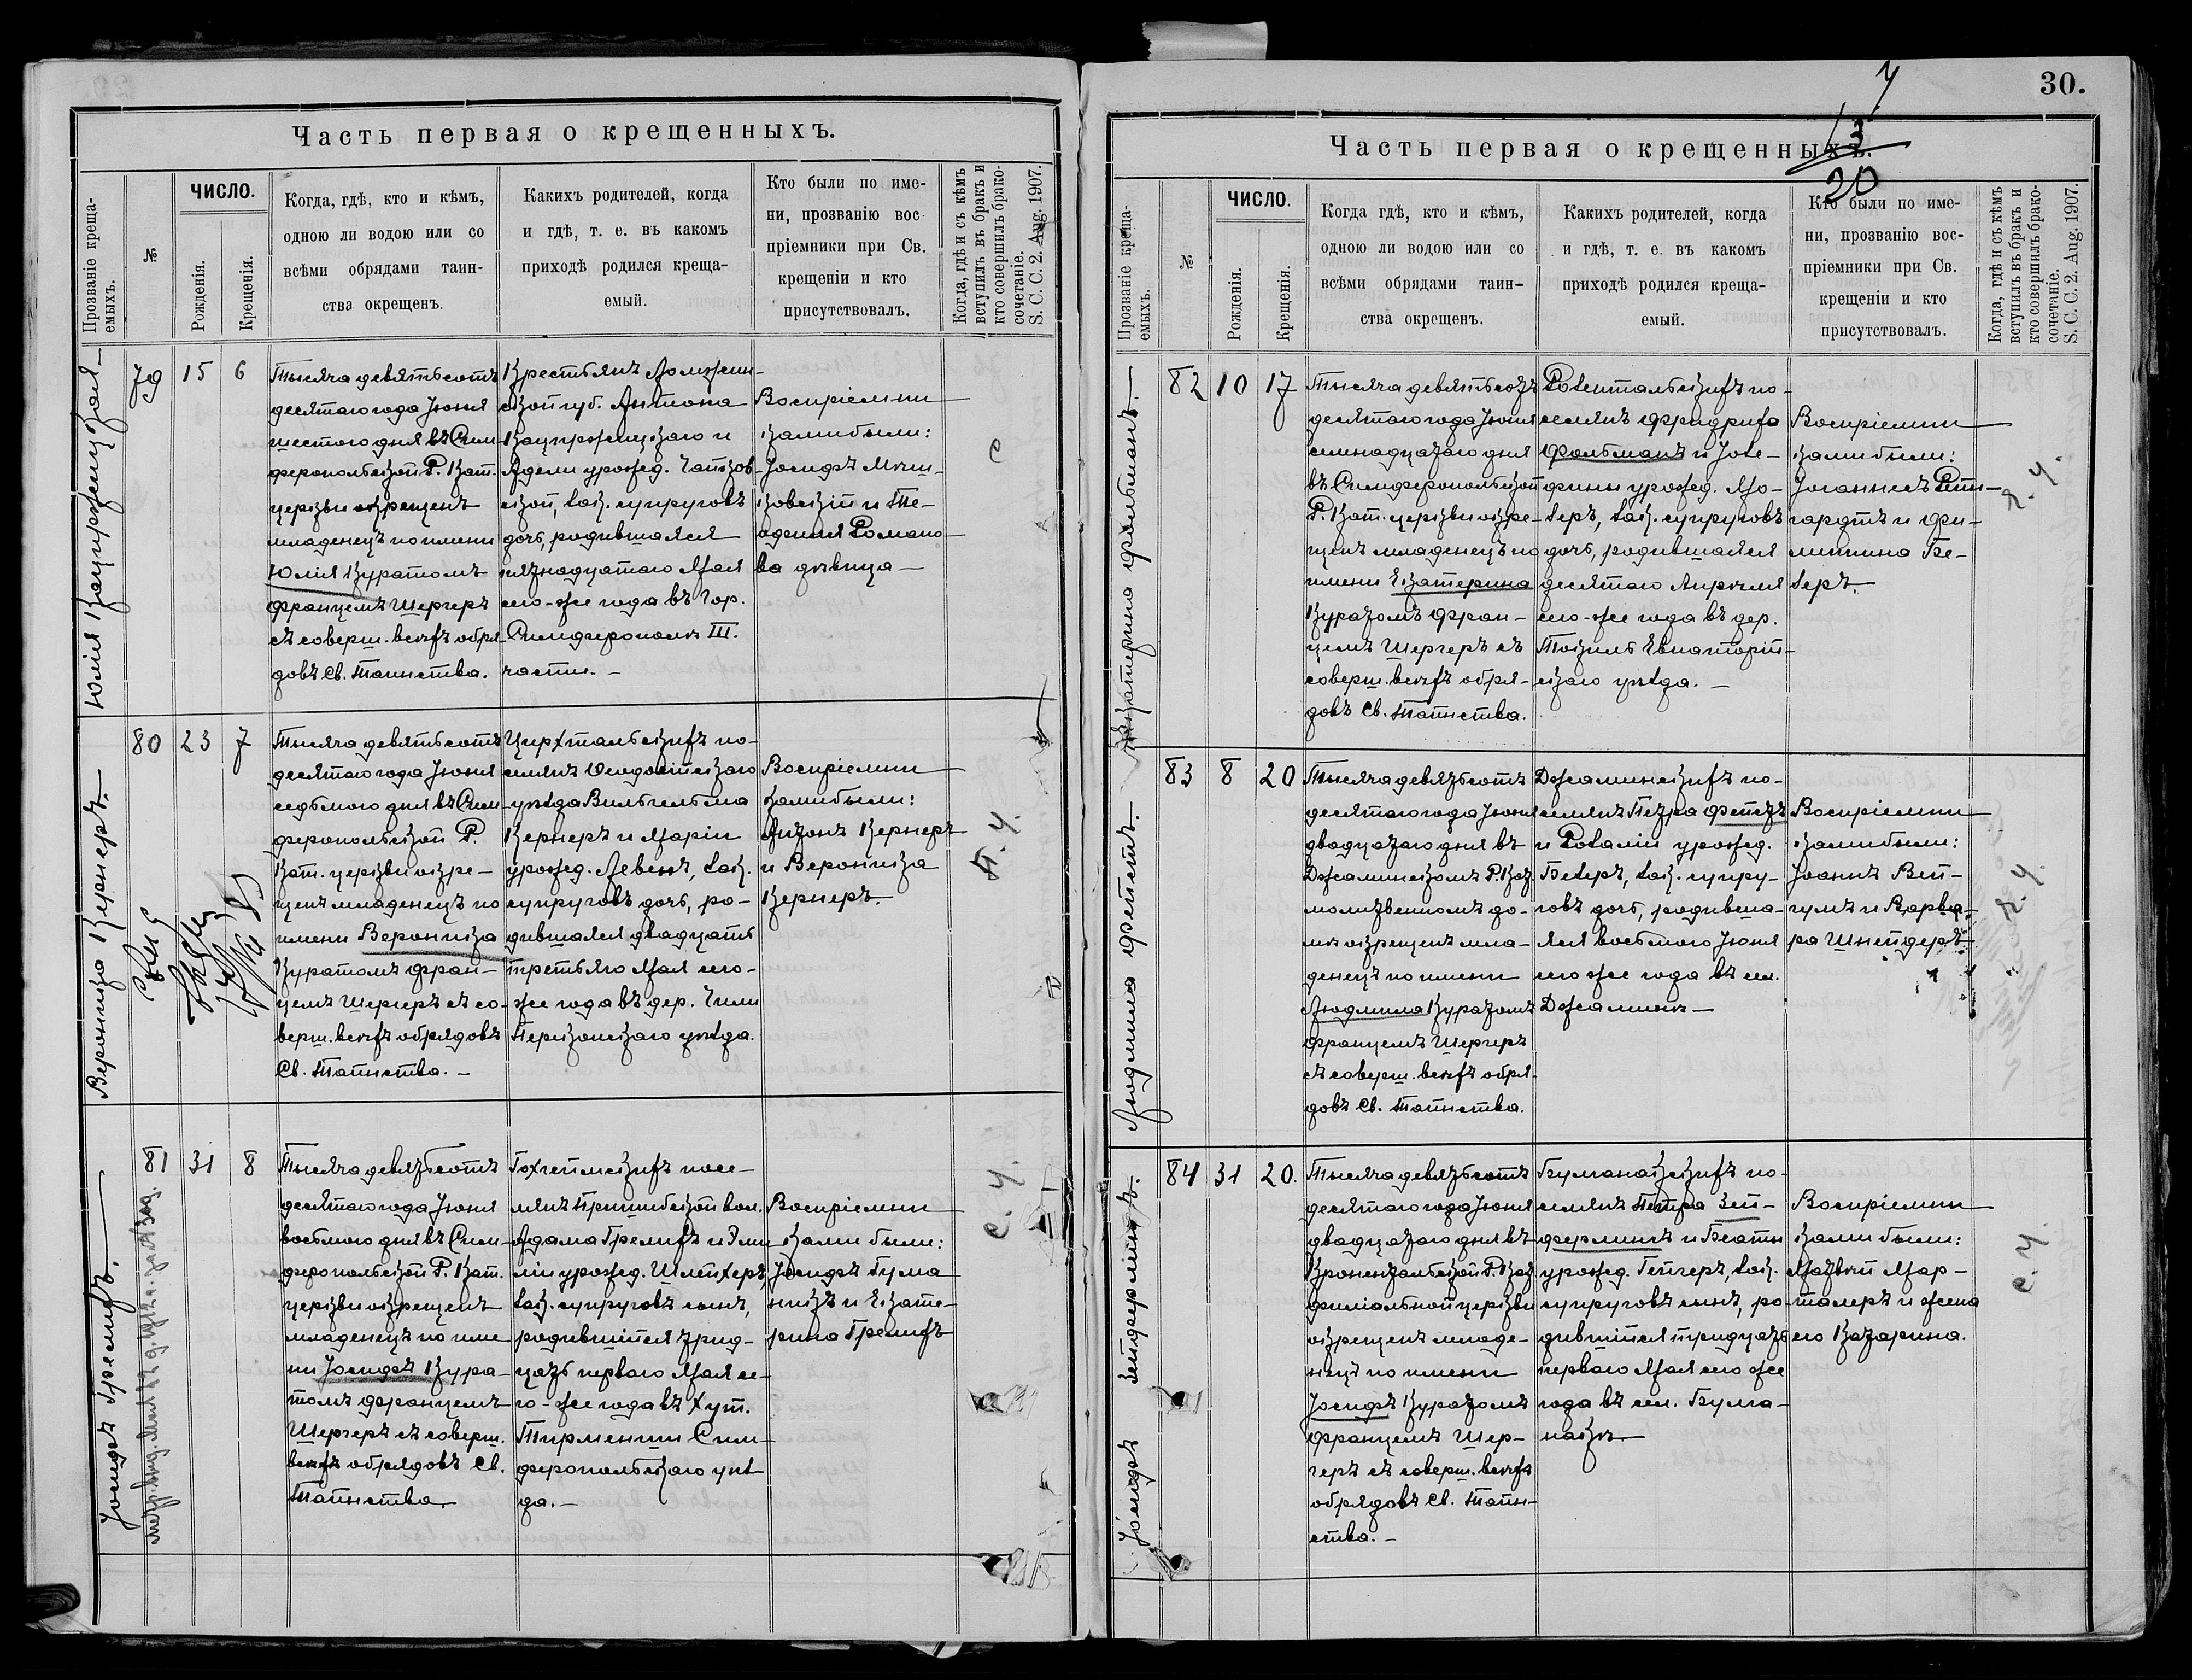 Часть первая о крещенныхъ.
Прозваніе креща-
емыхъ.
№
ЧИСЛО.
Рожденія.
Крещенія.
Когда, гдѣ, кто и кѣмъ,
одною ли водою или со
всѣми обрядами таин-
ства окрещенъ.
Какихъ родителей, когда
и гдѣ, т. е. въ какомъ
приходѣ родился креща-
емый.
Кто были по име-
ни, прозванію вос-
пріемники при Св.
крещеніи и кто
присутствовалъ.
Когда, гдѣ и съ кѣмъ
вступилъ въ бракъ и
кто совершилъ брако-
сочетаніе.
S. C. C. 2. Aug. 1907.
Юлія
79
15
6
Тысяча девятьсотъ
десятаго года Іюня
шестого дня въ Сим-
феропольской Р. Кат.
церкви окрещенъ
младенецъ по имени
Юлія Куратомъ
Францемъ Шергеръ
съ соверш. всѣхъ обря-
довъ Св. Таинства.
Крестьянъ Ломжин-
ской губ. Антона
и
Адели урожд. Чайков-
ской, зак. супруговъ
дочь, родившаяся
пятнадцатаго Мая
сего-же года въ гор.
Симферополѣ III.
части. –
Воспріемни-
ками были:
Іосифъ Мечи-
ковскій и Ѳе-
одосія Романо-
ва дѣвица –
с
Вероника Кернеръ.
80
23
7
Тысяча девятьсотъ
десятаго года Іюня
седьмого дня въ Сим-
феропольской Р.
Кат. церкви окре-
щенъ младенецъ по
имени Вероника
Куратомъ Фран-
цемъ Шергеръ съ со-
верш. всѣхъ обрядовъ
Св. Таинства. –
Цюрхтальскихъ по-
селянъ Ѳеодосійскаго
уѣзда Вильгельма
Кернеръ и Маріи
урожд. Левенъ, зак.
супруговъ дочь, ро-
дившаяся двадцать
третьяго Мая сего-
же года въ дер.
Перекопскаго уѣзда.
Воспріемни-
ками были:
Антонъ Кернеръ
и Вероника
Кернеръ.
Іосифъ Гремихъ.
81
31
8
Тысяча девятьсотъ
десятаго года Іюня
восьмого дня въ Сим-
феропольской Р. Кат.
церкви окрещенъ
младенецъ по име-
ни Іосифъ Кура-
томъ Францемъ
Шергеръ съ соверш.
всѣхъ обрядовъ Св.
Таинства.
Гохгеймскихъ посе-
лянъ Пришибской вол.
Адама Гремихъ и Эми-
ліи урожд. Шлейхеръ,
зак. супруговъ сынъ,
родившійся трид-
цать перваго Мая се-
го-же года въ хут.
Тирменчи Сим-
феропольскаго уѣз-
да. –
Воспріемни-
ками были:
Іосифъ Гума-
никъ и Екате-
рина Гремихъ
с. ч.
30.
Часть первая о крещенныхъ.
20
Прозваніе креща-
емыхъ.
№
ЧИСЛО.
Рожденія.
Крещенія.
Когда гдѣ, кто и кѣмъ,
одною ли водою или со
всѣми обрядами таин-
ства окрещенъ.
Какихъ родителей, когда
и гдѣ, т. е. въ какомъ
приходѣ родился креща-
емый.
Кто были по име-
ни, прозванію вос-
пріемники при Св.
крещеніи и кто
присутствовалъ.
Когда, гдѣ и съ кѣмъ
вступилъ въ бракъ и
кто совершилъ брако-
сочетаніе.
S. C. C. 2. Aug. 1907.
Екатерина Фольманъ.
82
10
17
Тысяча девятьсотъ
десятаго года Іюня
семнадцатаго дня
въ Симферопольской
Р. Кат. церкви окре-
щенъ младенецъ по
имени Екатерина
Куратомъ Фран-
цемъ Шергеръ съ
соверш. всѣхъ обря-
довъ Св. Таинства.
Розентальскихъ по-
селянъ Фридриха
Фольманъ и Іозе-
фины урожд. Мо-
зеръ, зак. супруговъ
дочь, родившаяся
десятаго Апрѣля
сего-же года въ дер.
Токуль Евпаторій-
скаго уѣзда. –
Воспріемни-
ками были:
Іоганнесъ Рейн-
гардтъ и Фи-
липпина Бе-
зеръ.
Людмила Фететъ.
83
8
20
Тысяча девятьсотъ
десятаго года Іюня
двадцатаго дня въ
Джаминскомъ Р. Кат.
молитвенномъ до-
мѣ окрещенъ мла-
денецъ по имени
Людмила Куратомъ
Францемъ Шергеръ
съ соверш. всѣхъ обря-
довъ Св. Таинства.
Джаминскихъ по-
селянъ Петра Фететъ
и Розаліи урожд.
Безеръ, зак. супру-
говъ дочь, родивша-
яся восьмого Іюня
сего же года въ сел.
Джаминъ –
Воспріемни-
ками были:
Іоаннъ Вей-
гумъ и Варва-
ра Шнейдеръ
Іосифъ Зейферлингъ.
84
31
20.
Тысяча девятьсотъ
десятаго года Іюня
двадцатаго дня въ
Кроненталь­ской Р. Кат.
филіальной церкви
окрещенъ младе-
нецъ по имени
Іосифъ Куратомъ
Францемъ Шер-
геръ съ соверш. всѣхъ
обрядовъ Св. Таин-
ства. –
Буманакскихъ по-
селянъ Петра Зей-
ферлингъ и Беаты
урожд. Гейгеръ, зак.
супруговъ сынъ, ро-
дившійся тридцать
перваго Мая сего же
года въ сел. Бума-
накъ.
Воспріемни-
ками были:
Матвѣй Мар-
талеръ и жена
его Катарина.
с. ч.